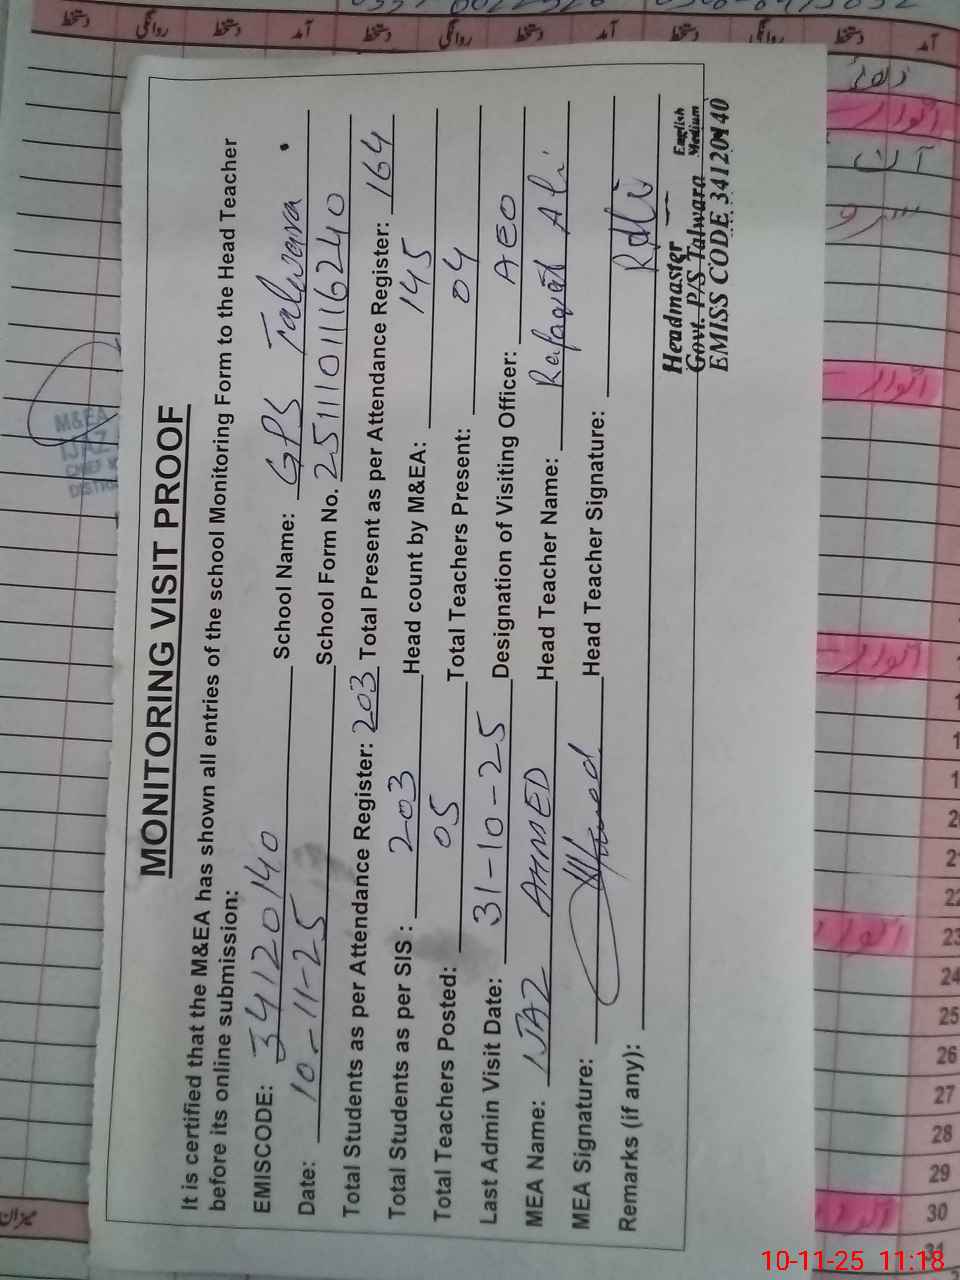 MONITORING VISIT PROOF
It is certified that the M&EA has shown all entries of the school Monitoring Form to the Head Teacher
before its online submission:
EMISCODE: 34120140 School Name: GPS Talwara
Date: 10-11-25 School Form No. 2511101116240
Total Students as per Attendance Register: 203 Total Present as per Attendance Register: 164
Total Students as per SIS : 203 Head count by M&EA: 145
Total Teachers Posted: 05 Total Teachers Present: 04
Last Admin Visit Date: 31-10-25 Designation of Visiting Officer: AEO
MEA Name: IJAZ AHMED Head Teacher Name: Rafaqat Ali
MEA Signature: Head Teacher Signature:
Remarks (if any):
Headmaster
Govt. P/S Talwara English Medium
EMISS CODE 34120140
M&EA
IJAZ
CHEF
DISTRI
آمد
دستخط
روانگی
دستخط
اتوار
اتوار
اتوار
اتوار
اتوار
میزان
20
22
23
24
25
26
27
28
29
30
31
10-11-25 11:18